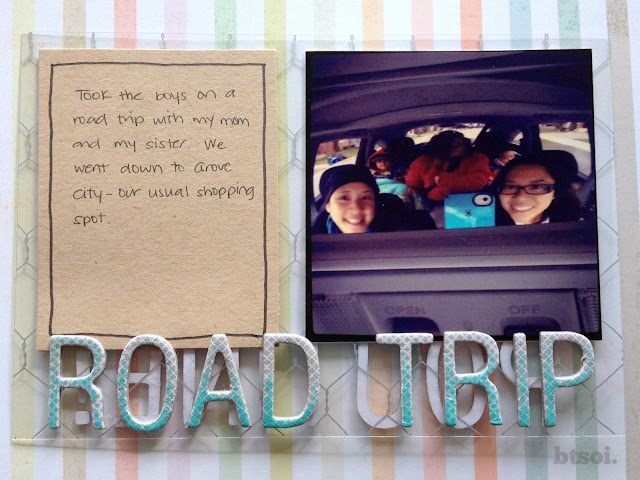 Took the boys on a
road trip with my mom
and my sister. We
went down to Grove
City - our usual shopping
spot.
OPEN OFF
ROAD TRIP
btsoi.